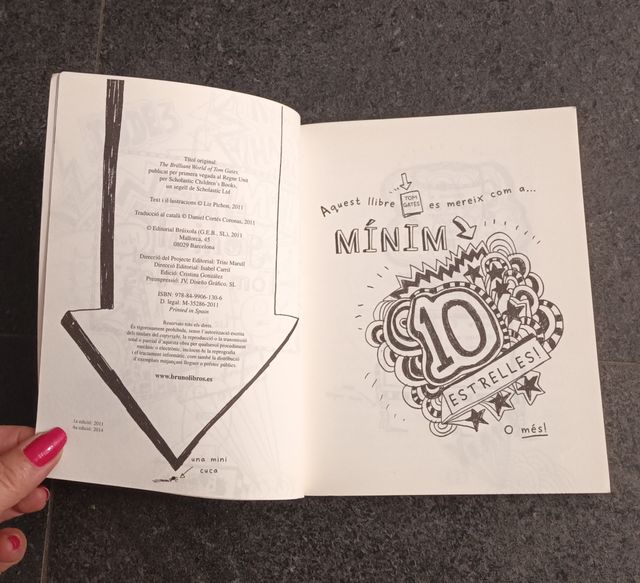 Títol original:
The Brilliant World of Tom Gates,
publicat per primera vegada al Regne Unit
per Scholastic Children's Books,
un segell de Scholastic Ltd
Text i il·lustracions © Liz Pichon, 2011
Traducció al català © Daniel Cortés Coronas, 2011
© Editorial Brúixola (G.E.B., SL), 2011
Mallorca, 45
08029 Barcelona
Direcció del Projecte Editorial: Trini Marull
Direcció Editorial: Isabel Carril
Edició: Cristina González
Preimpressió: JV, Diseño Gráfico, SL
ISBN: 978-84-9906-130-6
D. legal: M-35286-2011
Printed in Spain
Reservats tots els drets.
És rigorosament prohibida, sense l'autorització escrita
dels titulars del copyright, la reproducció o la transmissió
total o parcial d'aquesta obra per qualsevol procediment
mecànic o electrònic, incloent-hi la reprografia
i el tractament informàtic, com també la distribució
d'exemplars mitjançant lloguer o préstec públics.
www.brunolibros.es
1a edició: 2011
8a edició: 2014
una mini
cuca
Aquest llibre TOM GATES es mereix com a...
MÍNIM
10
ESTRELLES!
O més!